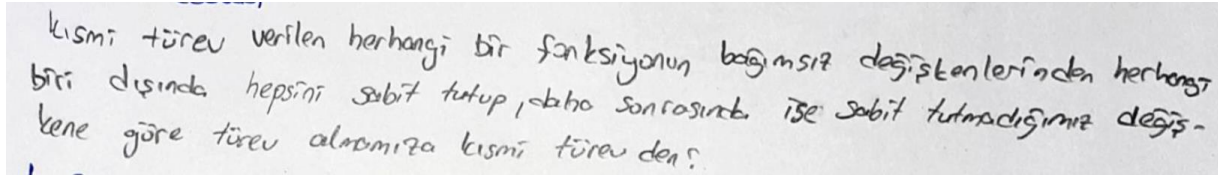 kısmi türev verilen herhangi bir fonksiyonun bağımsız değişkenlerinden herhangi
biri dışında hepsini sabit tutup, daha sonrasında ise sabit tutmadığımız değiş-
kene göre türev almamıza kısmi türev den?